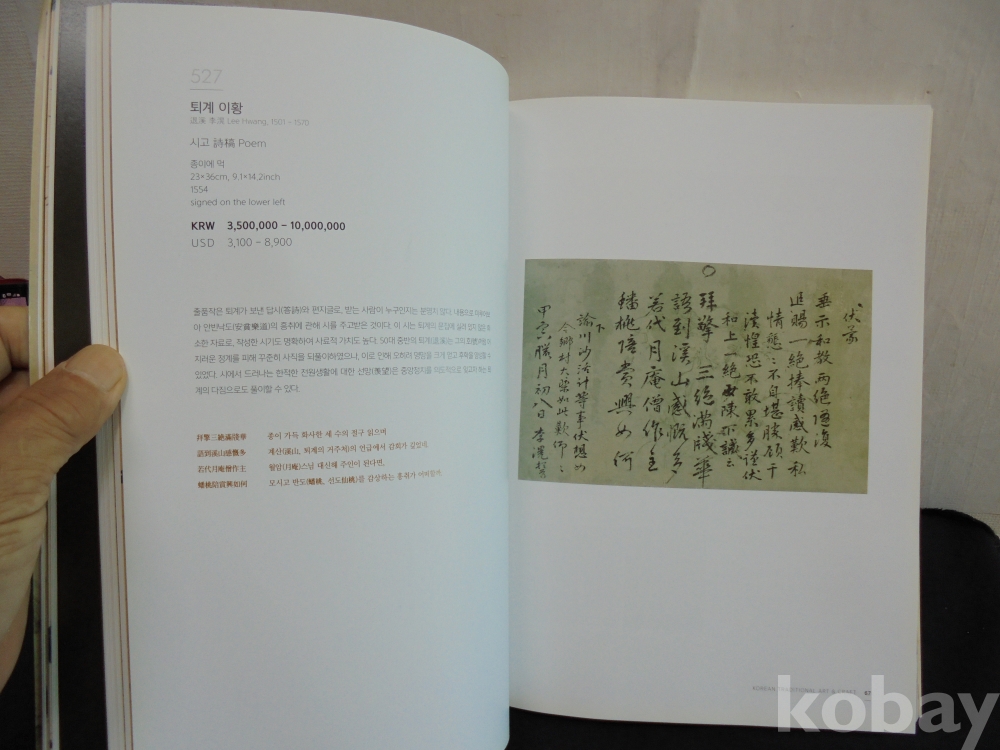 527
퇴계 이황
退溪 李滉 Lee Hwang, 1501 - 1570
시고 詩稿 Poem
종이에 먹
23×36cm, 9.1×14.2inch
1554
signed on the lower left
KRW 3,500,000 – 10,000,000
USD 3,100 – 8,900
출품작은 퇴계가 보낸 답시(答詩)와 편지글로, 받는 사람이 누구인지는 분명치 않다. 내용으로
아 안빈낙도(安貧樂道)의 흥취에 관해 시를 주고받은 것이다. 이 시는 퇴계의 문집에 실려 있지 않은
소한 자료로, 작성한 시기도 명확하여 사료적 가치도 높다. 50대 중반의 퇴계(退溪)는
지러운 정계를 피해 꾸준히 사직을 되풀이하였으나, 이로 인해 오히려 명망을 크게 얻고
있었다. 시에서 드러나는 한적한 전원생활에 대한 선망(羨望)은 중앙정치를 의도적으로 멀리
계의 다짐으로도 풀이할 수 있다.
拜擎三絶滿牋華 종이 가득 화사한 세 수의 절구 읽으며
語到溪山感慨多 계산(溪山, 퇴계의 거주처)의 언급에서 감회가 깊었네.
若代月庵僧作主 월암(月庵)스님 대신해 주인이 된다면,
蟠桃陪賞興如何 모시고 반도(蟠桃, 선도仙桃)를 감상하는 흥취가 어떠할까.
伏蒙
垂示和敎兩絶
追賜一絶捧讀感歎私
情 不自堪勝顧干
瀆惶恐不敢累多謹伏
和上一絶 陳不識云
拜擎三絶滿牋華
語到溪山感慨多
若代月庵僧作主
蟠桃陪賞興如何
下
諭川沙活計等事伏想如
今鄕村大槩如此歎仰
甲寅臘月初八日 李滉
KOREAN TRADITIONAL ART & CRAFT
kobay